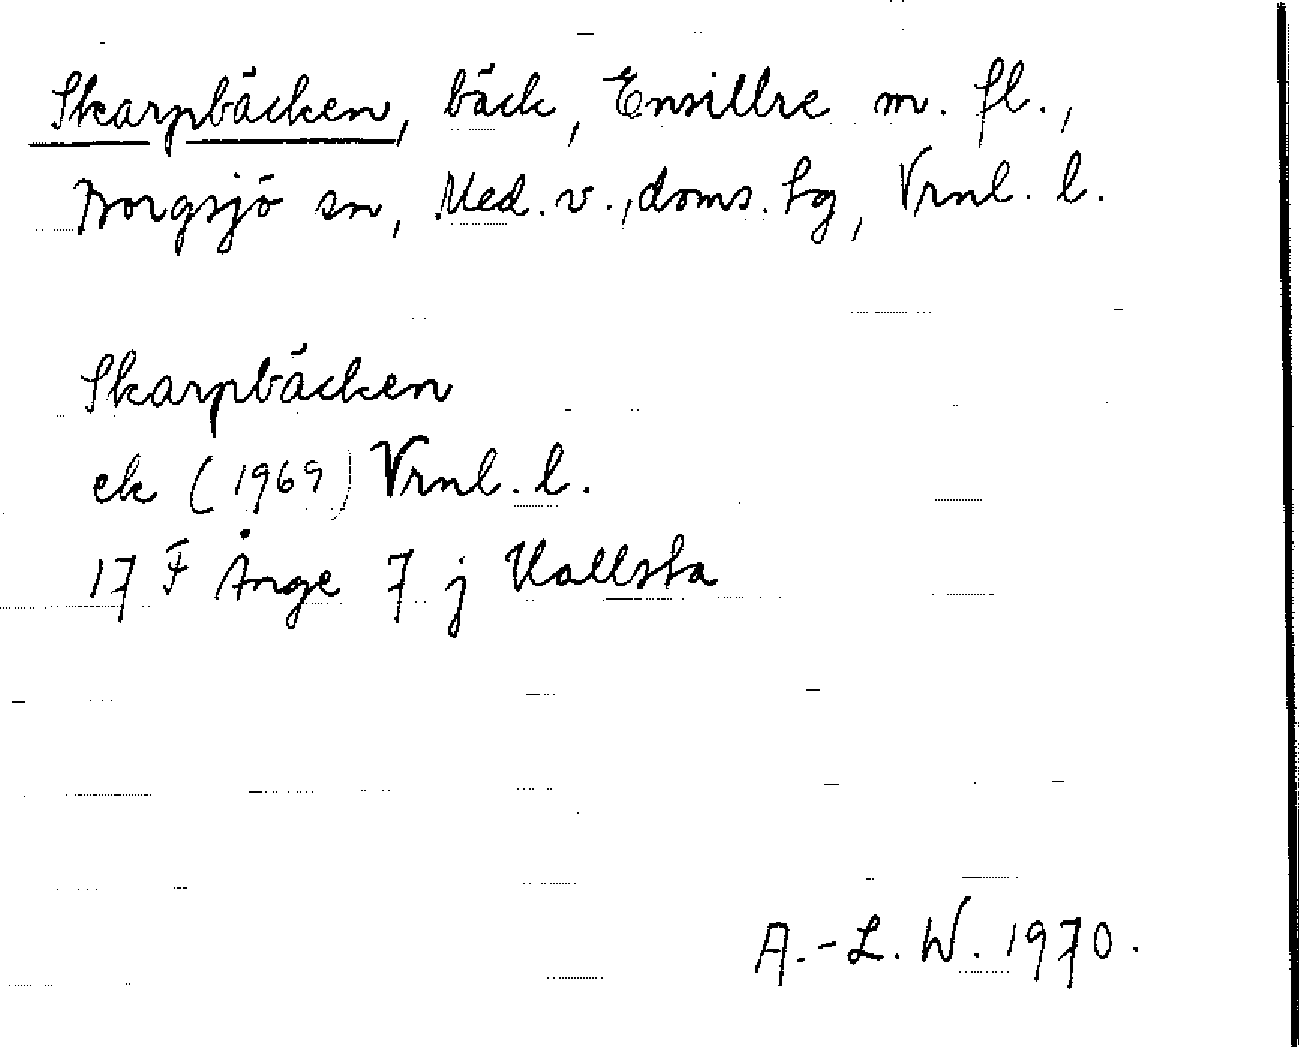 Skarpbäcken, bäck, Ensillre m. fl.,
Borgsjö sn, Med. v., doms. hg, Vrnl. l.
Skarpbäcken
ek (1969) Vrnl. l.
17 F Ånge 7 j Hallsta
A.-L. W. 1970.